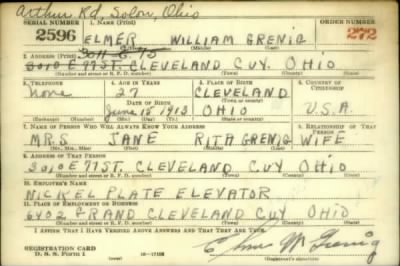 Arthur Rd, Solon, Ohio
SERIAL NUMBER 1. NAME (Print) ORDER NUMBER
2596 ELMER WILLIAM GRENIG 272
(First) (Middle) (Last)
2. ADDRESS (Print)
3010 E 77 ST. CLEVELAND CUY. OHIO
(Number and street or R. F. D. number) (Town) (County) (State)
3. TELEPHONE 4. AGE IN YEARS 5. PLACE OF BIRTH 6. COUNTRY OF CITIZENSHIP
None 27 CLEVELAND
DATE OF BIRTH (Town or county)
June 18 1913 OHIO U.S.A.
(Exchange) (Number) (Mo.) (Day) (Yr.) (State or country)
7. NAME OF PERSON WHO WILL ALWAYS KNOW YOUR ADDRESS 8. RELATIONSHIP OF THAT PERSON
MRS JANE RITA GRENIG WIFE
(Mr., Mrs., Miss) (First) (Middle) (Last)
9. ADDRESS OF THAT PERSON
3010 E 77 ST. CLEVELAND CUY OHIO
(Number and street or R. F. D. number) (Town) (County) (State)
10. EMPLOYER'S NAME
NICKEL PLATE ELEVATOR
11. PLACE OF EMPLOYMENT OR BUSINESS
6402 GRAND CLEVELAND CUY OHIO
(Number and street or R. F. D. number) (Town) (County) (State)
I AFFIRM THAT I HAVE VERIFIED ABOVE ANSWERS AND THAT THEY ARE TRUE.
REGISTRATION CARD
D. S. S. Form 1
(Registrant's signature)